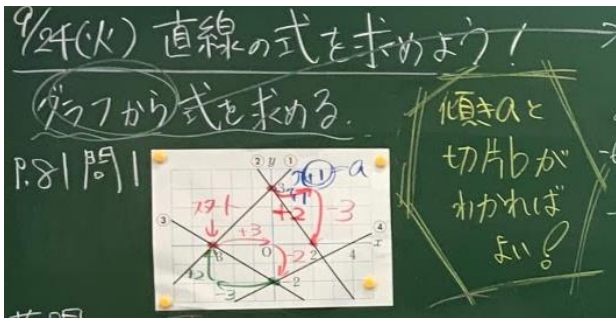 9/24(火) 直線の式を求めよう!
グラフから式を求める.
P.81 問1
傾きaと
切片bが
わかれば
よい!
② y ①
3
+1 = a
+2
-3
スタート
③
+3
④
-3
O
2
4
x
-2
+2
-3
-2